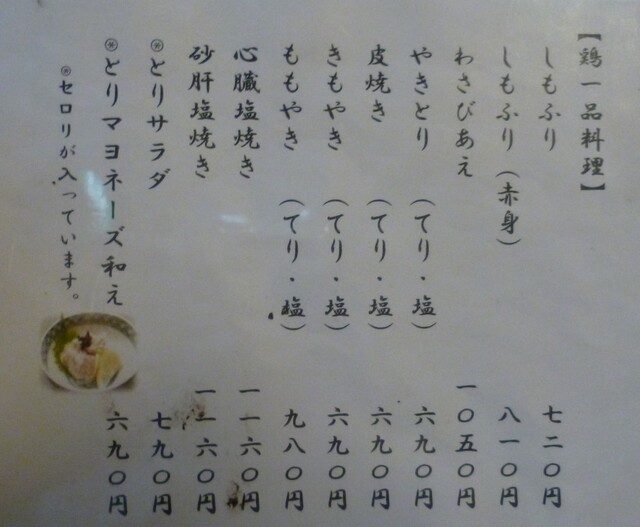 【鶏一品料理】
しもふり 七二〇円
しもふり（赤身） 八一〇円
わさびあえ 一〇五〇円
やきとり（てり・塩） 六九〇円
皮焼き（てり・塩） 六九〇円
きもやき（てり・塩） 六九〇円
ももやき（てり・塩） 九八〇円
心臓塩焼き 一一六〇円
砂肝塩焼き 一一六〇円
※とりサラダ 七九〇円
※とりマヨネーズ和え 六九〇円
※セロリが入っています。